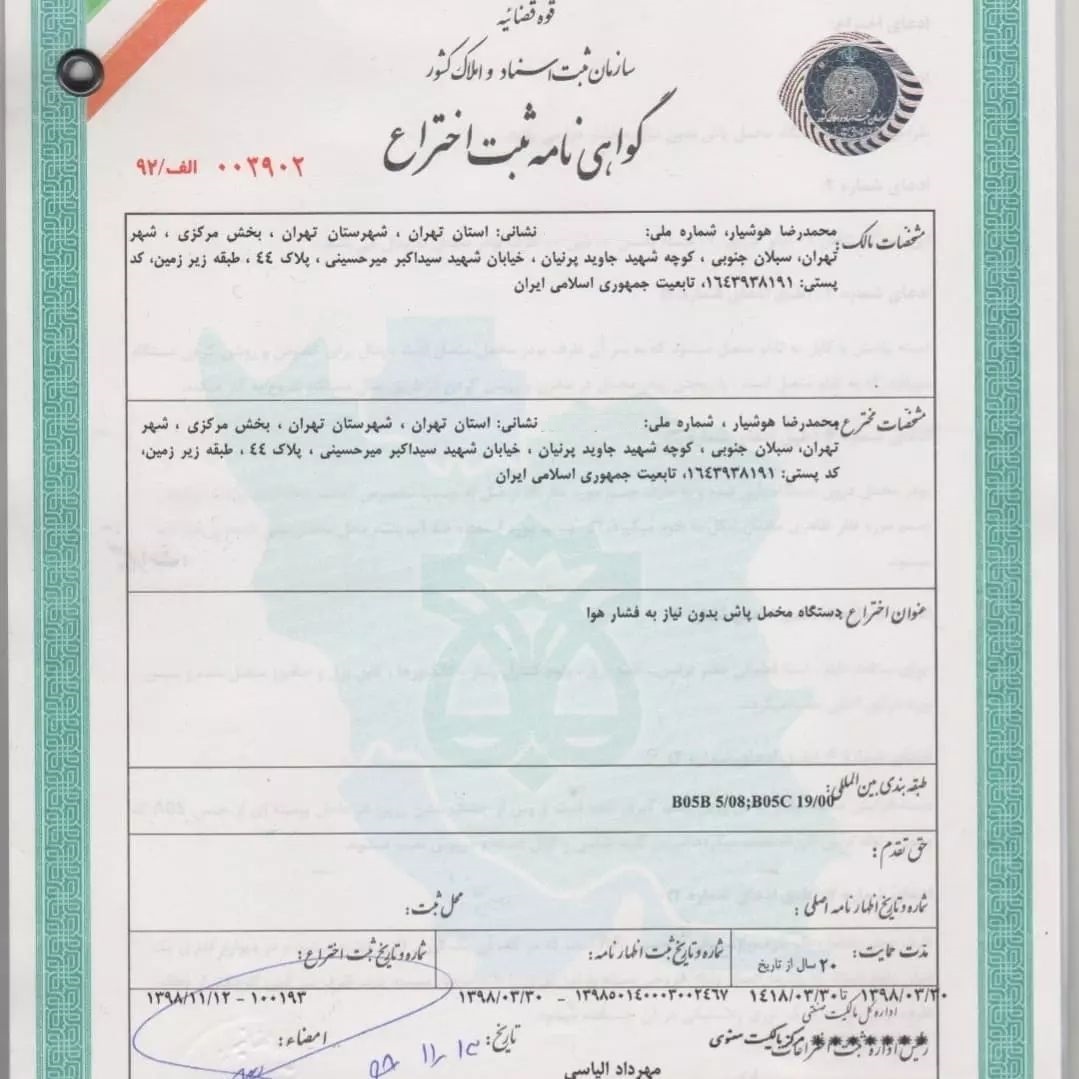 قوه قضائیه
سازمان ثبت اسناد و املاک کشور
گواهی نامه ثبت اختراع
۰۰۳۹۰۲ الف/۹۲
مشخصات مالک: محمدرضا هوشیار، شماره ملی: نشانی: استان تهران ، شهرستان تهران ، بخش مرکزی ، شهر
تهران، سبلان جنوبی ، کوچه شهید جاوید پرنیان ، خیابان شهید سیداکبر میرحسینی ، پلاک ٤٤ ، طبقه زیر زمین، کد
پستی: ۱٦٤۳۹۳۸۱۹۱، تابعیت جمهوری اسلامی ایران
مشخصات مخترع: محمدرضا هوشیار ، شماره ملی: نشانی: استان تهران ، شهرستان تهران ، بخش مرکزی ، شهر
تهران، سبلان جنوبی ، کوچه شهید جاوید پرنیان ، خیابان شهید سیداکبر میرحسینی ، پلاک ٤٤ ، طبقه زیر زمین،
کد پستی: ۱٦٤۳۹۳۸۱۹۱، تابعیت جمهوری اسلامی ایران
عنوان اختراع: دستگاه مخمل پاش بدون نیاز به فشار هوا
طبقه بندی بین المللی:
B05B 5/08;B05C 19/00
حق تقدم:
شماره و تاریخ اظهار نامه اصلی: محل ثبت:
مدت حمایت: ۲۰ سال از تاریخ شماره و تاریخ ثبت اظهار نامه: شماره و تاریخ ثبت اختراع:
۱۳۹۸/۰۳/۳۰ تا ۱٤۱۸/۰۳/۳۰ ۱۳۹۸۵۰۱٤۰۰۰۳۰۰۲٤٦۷ - ۱۳۹۸/۰۳/۳۰ ۱۰۰۱۹۳ - ۱۳۹۸/۱۱/۱۲
اداره کل مالکیت صنعتی
رئیس اداره ثبت اختراعات مرکز مالکیت معنوی تاریخ: امضاء:
مهرداد الیاسی